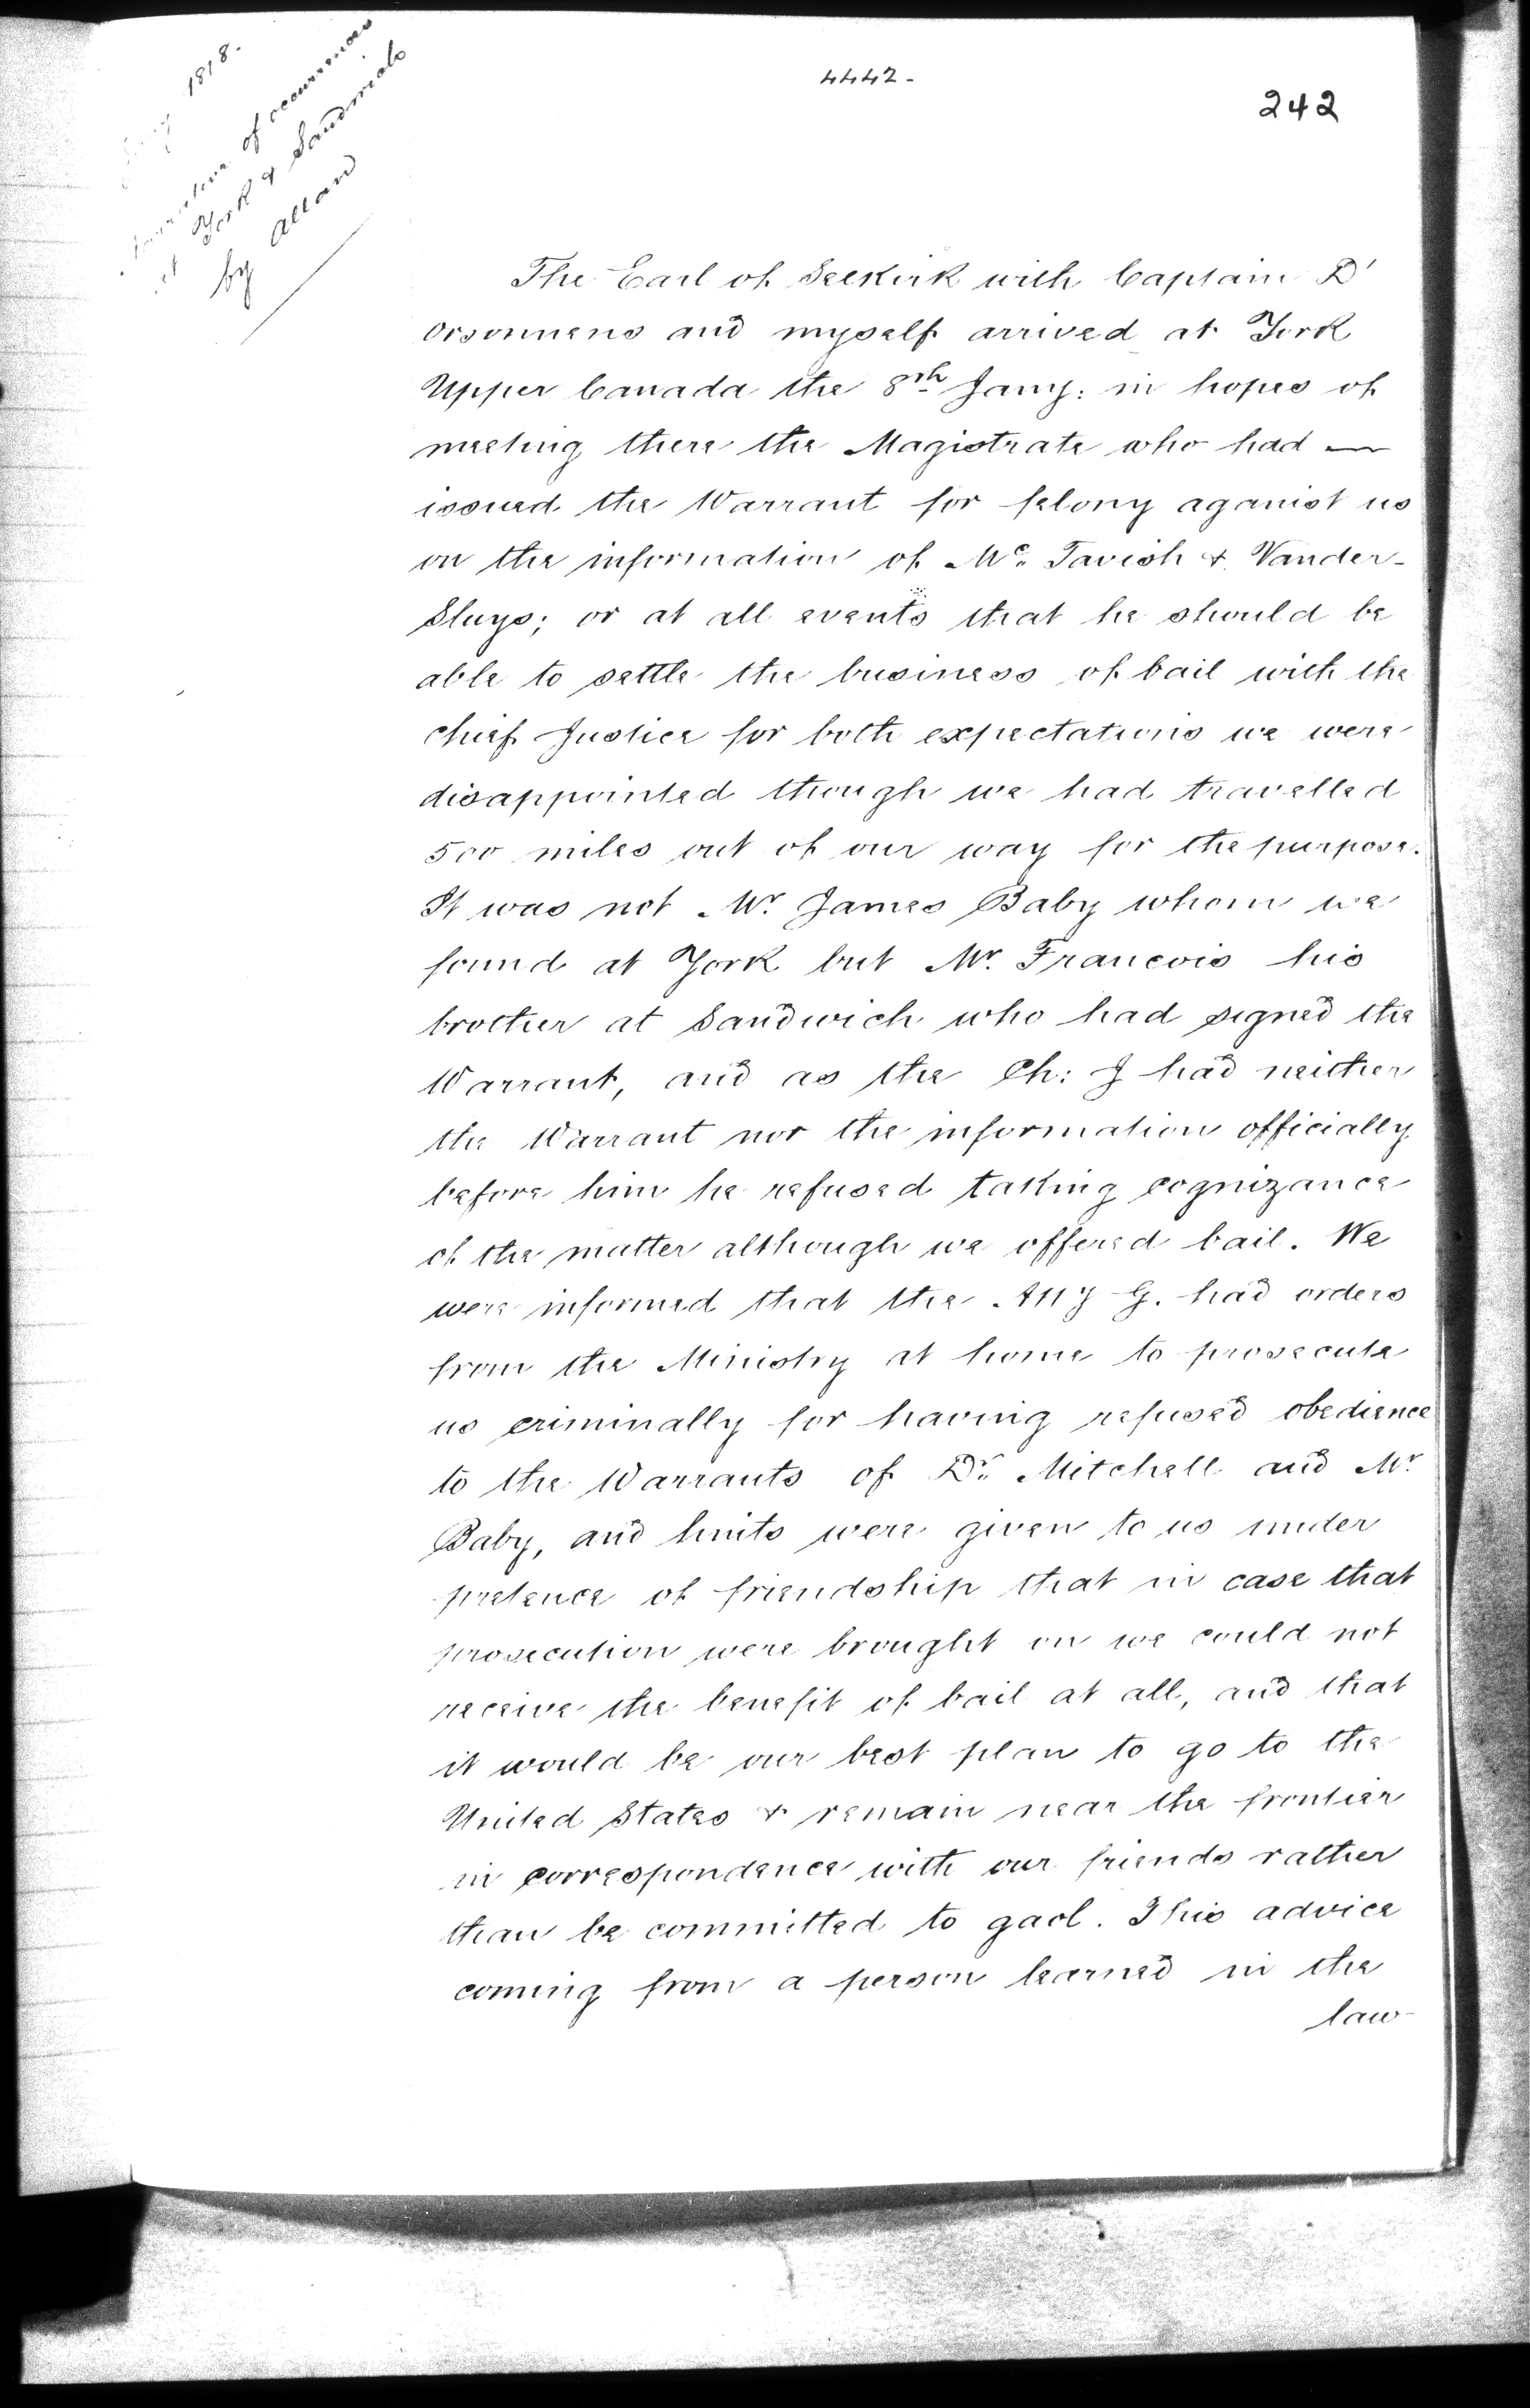 4442-
242
1818.
of occurrences
at York & Sandwich
by Allan
The Earl of Selkirk with Captain D'
Orsonnens and myself arrived at York
Upper Canada the 8th Jany: in hopes of
meeting there the Magistrate who had —
issued the Warrant for felony against us
on the information of Mc. Tavish & Vander-
Sluys; or at all events that he should be
able to settle the business of bail with the
Chief Justice for both expectations we were
disappointed though we had travelled
500 miles out of our way for the purpose.
It was not Mr. James Baby whom we
found at York but Mr. Francois his
brother at Sandwich who had signed the
Warrant, and as the Ch: J had neither
the Warrant nor the information officially
before him he refused taking cognizance
of the matter although we offered bail. We
were informed that the Atty G. had orders
from the Ministry at home to prosecute
us criminally for having refused obedience
to the Warrants of Dr. Mitchell and Mr.
Baby, and hints were given to us under
pretence of friendship that in case that
prosecution were brought on we could not
receive the benefit of bail at all, and that
it would be our best plan to go to the
United States & remain near the frontier
in correspondence with our friends rather
than be committed to gaol. This advice
coming from a person learned in the
law